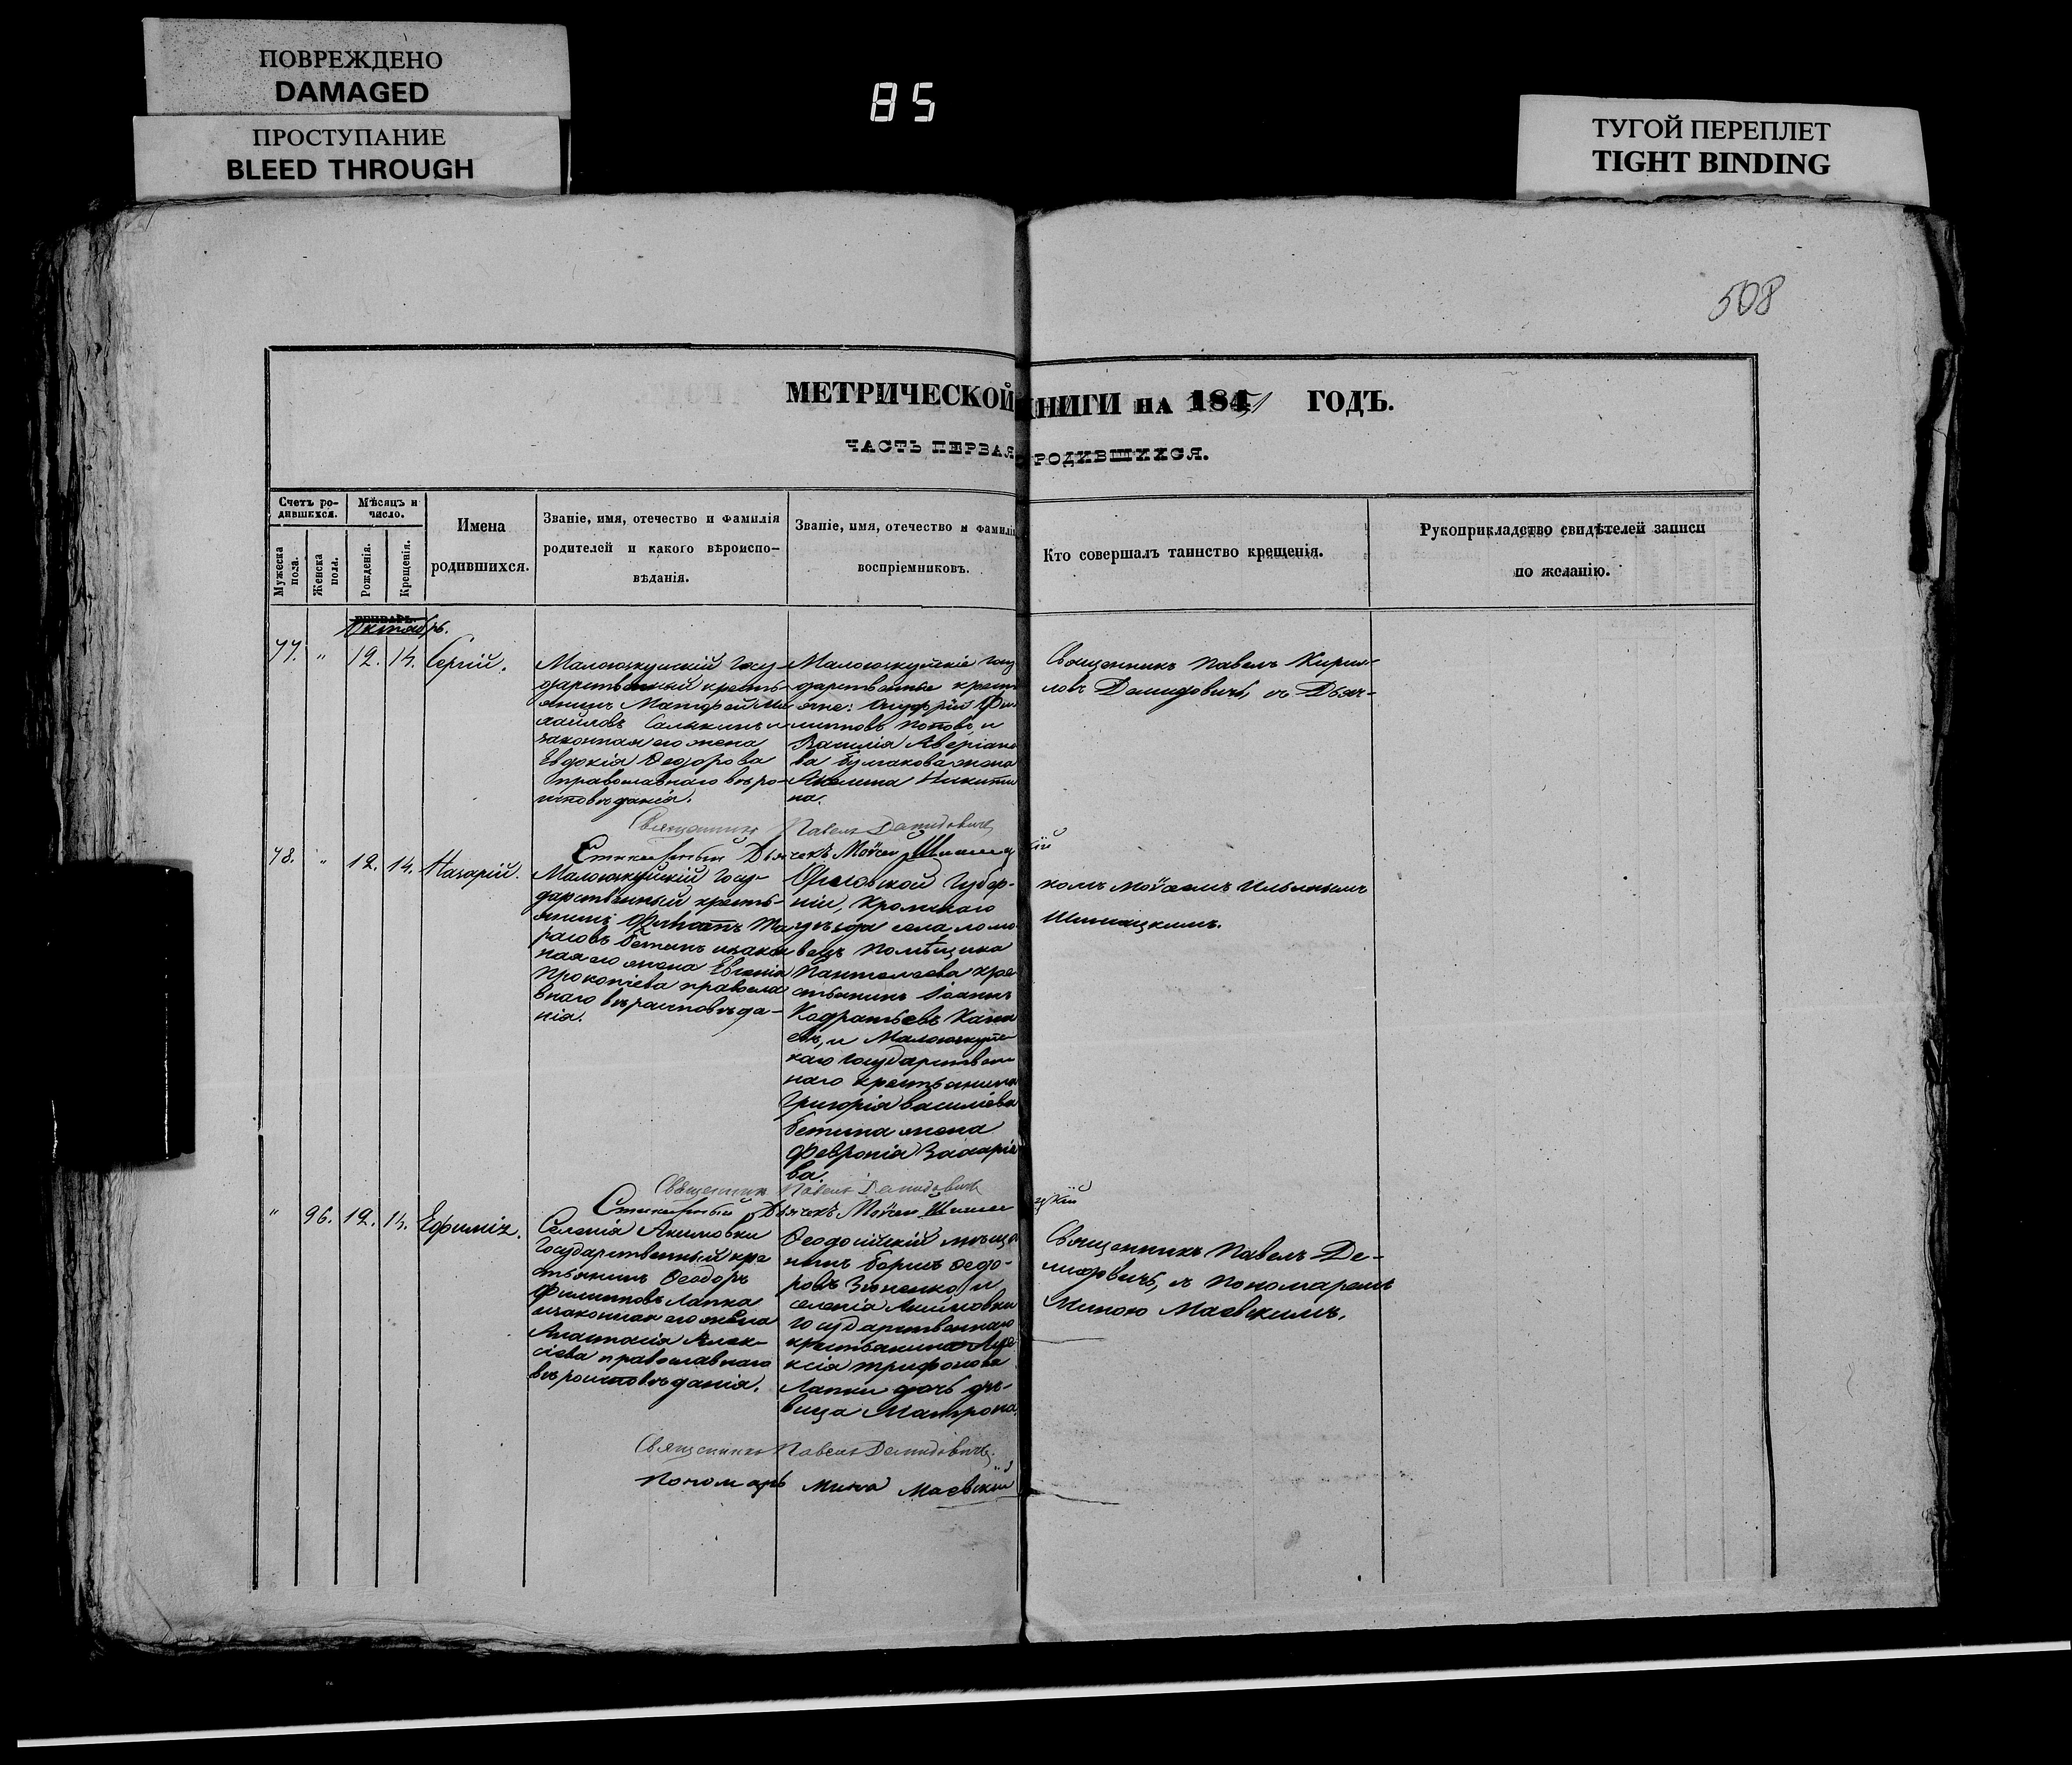 ПОВРЕЖДЕНО
DAMAGED
ПРОСТУПАНИЕ
BLEED THROUGH
85
ТУГОЙ ПЕРЕПЛЕТ
TIGHT BINDING
508
МЕТРИЧЕСКОЙ КНИГИ НА 1851 ГОДЪ.
ЧАСТЬ ПЕРВАЯ О РОДИВШИХСЯ.
Счетъ ро-
дившихся.
Мужеска
пола.
Женска
пола.
Мѣсяцъ и
число.
Рожденія.
Крещенія.
Имена
родившихся.
Званіе, имя, отечество и фамилія
родителей и какого вѣроиспо-
вѣданія.
Званіе, имя, отечество и фамилія
воспріемниковъ.
Кто совершалъ таинство крещенія.
Рукоприкладство свидѣтелей записи
по желанію.
ЯНВАРЬ.
Октябрь.
77. " 12. 14. Сергій.
Малоюзкуйскій Госу-
дарственный кресть-
янинъ Матфей Ми
хайловъ Салыкинъ и
законная его жена
Евдокія Ѳеодорова
православнаго вѣро-
исповѣданія.
Малоюзкуйскіе Госу
дарственные кресть
яне: Онуфрій Фи
липповъ Поповъ, и
Василія Аверіано
ва Булгакова жена
Акилина Никити
на.
Священникъ Павелъ Кирил-
ловъ Демидовичъ, съ Дьяч-
Священникъ Павелъ Демидовичъ
Стихарный Дьячекъ Мойсей Шиманцкій
78. " 12. 14. Назарій.
Малоюзкуйскій Госу-
дарственный кресть-
янинъ Филиппъ Та
расовъ Бетинъ и закон
ная его жена Евгенія
Прокопіева правосла
внаго вѣроисповѣда-
нія.
Орловской Губер-
ніи, Кромскаго
уѣзда села Ломо
вецъ помѣщика
Пантелеева кре
стьянинъ Іоаннъ
Кодратьевъ
евъ, и Малоюзкуйс
каго Государствен
наго крестьянина
Григорія Василіева
Бетина жена
Февронія Захаріе
ва.
комъ Мойсеемъ Ильинымъ
Шиманцкимъ.
Священникъ Павелъ Демидовичъ
Стихарный Дьячекъ Мойсей Шиманцкій
" 96. 12. 14. Ефимія.
Селенія Акимовки
Государственный кре
стьянинъ Ѳеодоръ
Филипповъ Лапка
и законная его жена
Анастасія Алек-
сіева православнаго
вѣроисповѣданія.
Ѳеодосійскій мѣща
нинъ Борисъ Ѳедо-
ровъ Зиненко, и
селенія Акимовки
Государственнаго
крестьянина Але
ксія Трифонова
Лапки дочь дѣ-
вица Матрона.
Священникъ Павелъ Де-
мидовичъ, съ пономаремъ
Миною Маевскимъ.
Священникъ Павелъ Демидовичъ
Пономарь Мина Маевскій